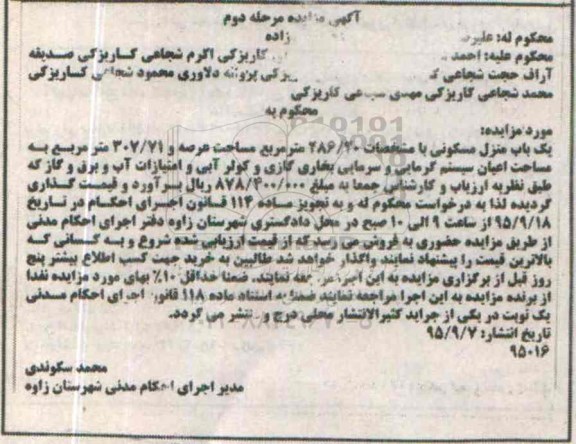 آگهی مزایده مرحله دوم
محکوم له: علیرضا زاده
محکوم علیه: احمد کاریزکی اکرم شجاعی کاریزکی صدیقه
آراف حجت شجاعی کاریزکی پروانه دلاوری محمود شجاعی کاریزکی
محمد شجاعی کاریزکی مهدی شجاعی کاریزکی
محکوم به
مورد مزایده:
یک باب منزل مسکونی با مشخصات ۲۸۶/۲۰ مترمربع مساحت عرصه و ۳۰۷/۷۱ متر مربع به
مساحت اعیان سیستم گرمایی و سرمایی بخاری گازی و کولر آبی و امتیازات آب و برق و گاز که
طبق نظریه ارزیاب و کارشناس جمعا به مبلغ ۸۷۸/۴۰۰/۰۰۰ ریال برآورد و قیمت گذاری
گردیده لذا به درخواست محکوم له و به تجویز ماده ۱۱۴ قانون اجرای احکام در تاریخ
۹۵/۹/۱۸ از ساعت ۹ الی ۱۰ صبح در محل دادگستری شهرستان زاوه دفتر اجرای احکام مدنی
از طریق مزایده حضوری به فروش می رسد که از قیمت ارزیابی شده شروع و به کسانی که
بالاترین قیمت را پیشنهاد نمایند واگذار خواهد شد طالبین به خرید جهت کسب اطلاع بیشتر پنج
روز قبل از برگزاری مزایده به این اجرا مراجعه نمایند. ضمنا حداقل ۱۰٪ بهای مورد مزایده نقدا
از برنده مزایده به این اجرا مراجعه نمایند ضمنا به استناد ماده ۱۱۸ قانون اجرای احکام مدنی
یک نوبت در یکی از جراید کثیرالانتشار محلی درج و منتشر می گردد.
تاریخ انتشار: ۹۵/۹/۷
۹۵۰۱۶
محمد سکوندی
مدیر اجرای احکام مدنی شهرستان زاوه